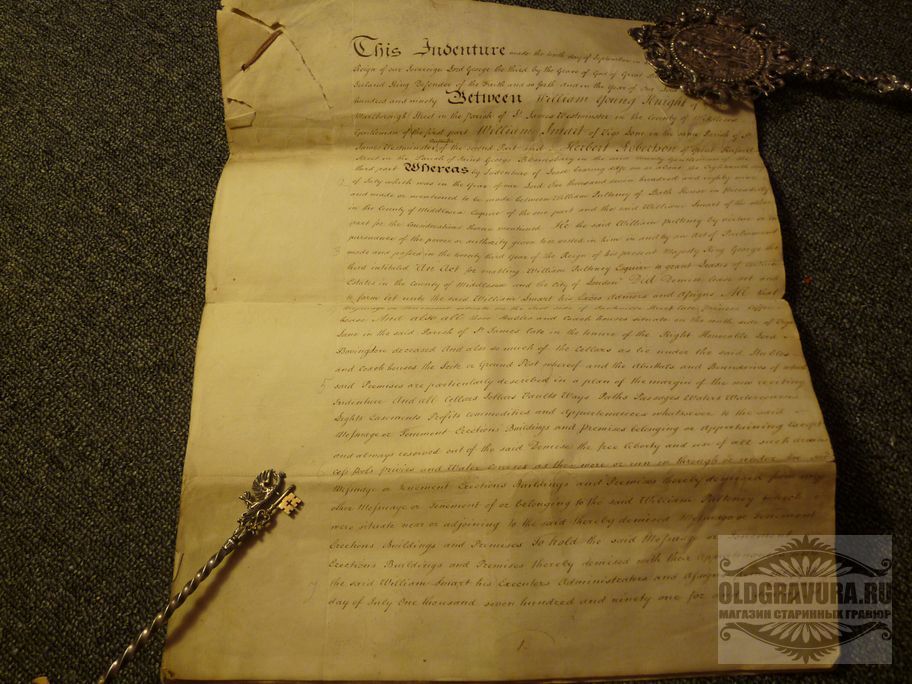 This Indenture made the tenth day of September in
Reign of our Sovereign Lord George the third by the Grace of God of Great
Ireland King Defender of the Faith and so forth and in the Year of our Lord
hundred and ninety Between William Young Knight of
Marlborough Street in the Parish of St. James Westminster in the County of Middlesex
Gentleman of the first part William Smart of in the same Parish of St.
James Westminster of the second Part and Herbert Robertson of Great Russell
Street in the Parish of Saint George Bloomsbury in the said County Gentleman of the
third part Whereas by Indenture of Lease bearing date on or about the Eighteenth
of July which was in the Year of our Lord One thousand seven hundred and eighty nine
and made or mentioned to be made between William Pulteney of Bath House in Piccadilly
in the County of Middlesex Esquire of the one part and the said William Smart of the other
part for the Considerations therein mentioned He the said William Pulteney by virtue or in
pursuance of the power or authority given to or vested in him in and by an Act of Parliament
made and passed in the twenty third Year of the Reign of his present Majesty King George the
third intituled "An Act for enabling William Pulteney Esquire to grant Leases of certain
Estates in the County of Middlesex and the City of London" Did Demise lease set and
to farm let unto the said William Smart his Exors Admors and Assigns All that
House And also all those Stables and Coach houses situate on the south side of
Lane in the said Parish of St. James late in the tenure of the Right Honorable Lord
Barrington deceased And also so much of the Cellars as lie under the said Stables
and Coach houses the Scite or Ground Plot whereof and the Abuttals and Boundaries of which
said Premises are particularly described in a plan of the margin of the now reciting
Indenture And all Cellars Sollars Vaults Ways Paths Passages Waters Watercourses
Lights Easements Profits Commodities and Appurtenances whatsoever to the said
Messuage or Tenement Erections Buildings and premises belonging or appertaining Except
and always reserved out of the said Demise the free liberty and use of all such drains
Cesspools privies and Water Courses as then were or run in through or under the said
Messuage or Tenement Erections Buildings and Premises thereby demised from any
other Messuage or Tenement of or belonging to the said William Pulteney which
were situate near or adjoining to the said thereby demised Messuage Tenement
Erections Buildings and Premises To hold the said Messuage or Tenement
Erections Buildings and Premises thereby demised with their Appurtenances
the said William Smart his Executors Administrators and Assigns
day of July One thousand seven hundred and ninety one for
1
OLDGRAVURA.RU
МАГАЗИН СТАРИННЫХ ГРАВЮР